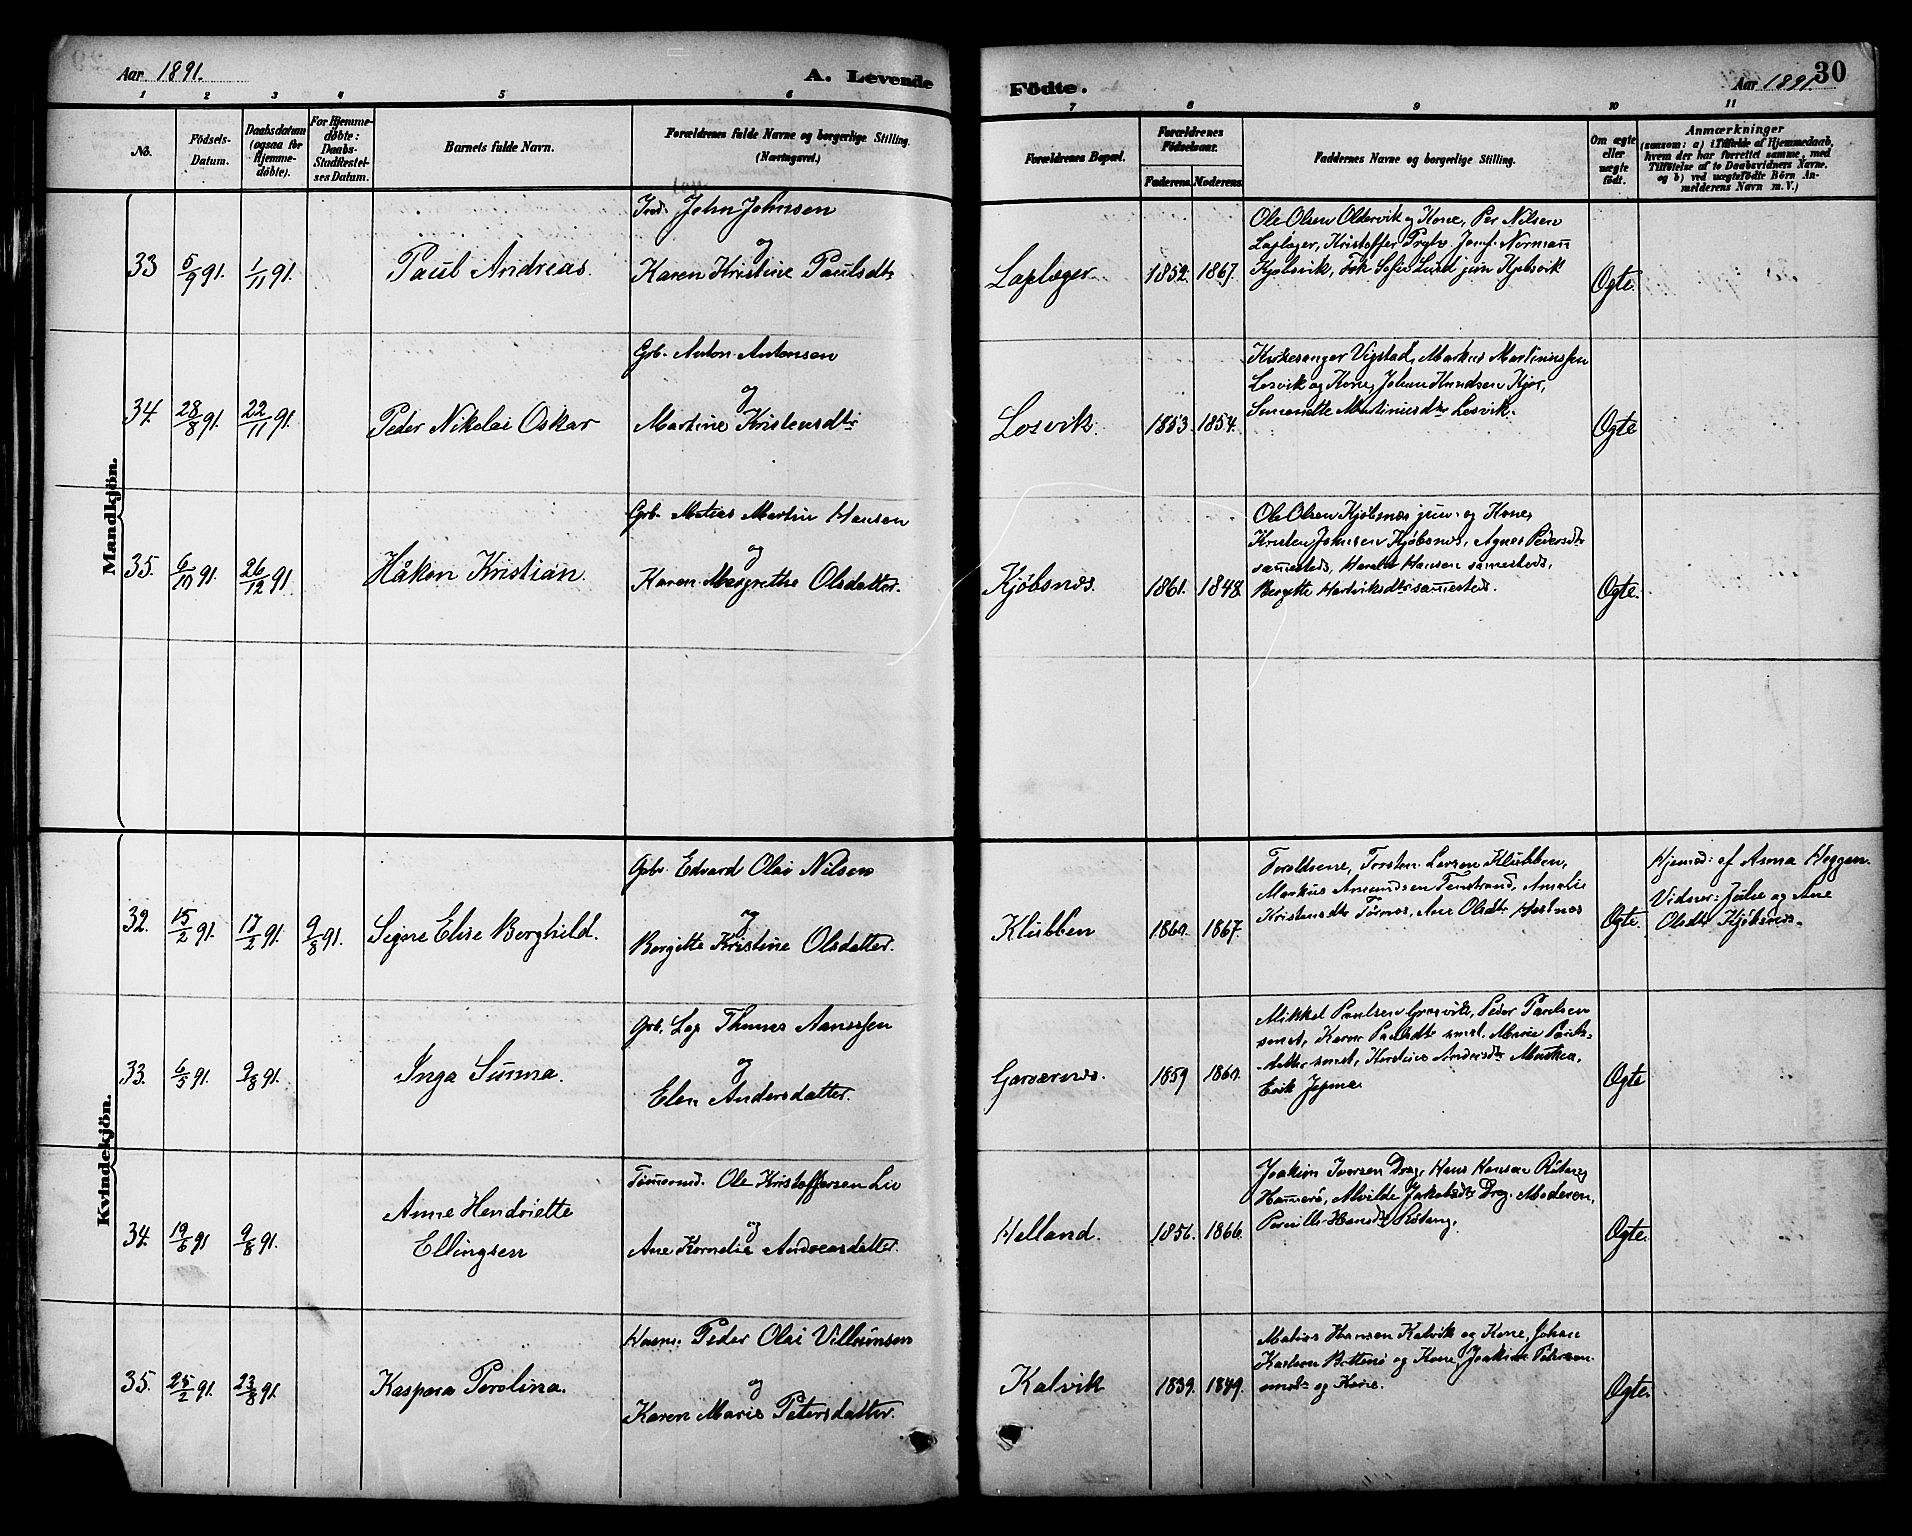 Aar 1891.
A. Levende
Födte.
Aar 1891.
30
1 2 3 4 5 6 7 8 9 10 11
No.
Födsels-Datum.
Daabsdatum (ogsaa for Hjemme-døbte).
For Hjemme-døbte: Daabs-Stadfæstel-ses Datum.
Barnets fulde Navn.
Forældrenes fulde Navne og borgerlige Stilling. (Næringsvei.)
Forældrenes Bopæl.
Forældrenes Födselsaar.
Faderens. Moderens.
Faddernes Navne og borgerlige Stilling.
Om ægte eller uægte født.
Anmærkninger
(saasom: a) i Tilfælde af Hjemmedaab,
hvem der har forrettet samme, med
Tilföielse af to Daabsvidners Navne,
og b) ved uægtefödte Börn An-
melderens Navn m. V.)
Mandkjön.
33 5/9 91. 1/11 91. Paul Andreas.
Ind. John Johnsen
og
Karen Kristine Paulsdt
Laplæger 1852. 1867.
Ole Olsen Oldervik og Kone, Per Nilsen
Laplæger, Kristoffer Jomf. Normann
Kjelsvik, Frk Sofie Lund jun Kjelsvik
Ogte.
34. 28/8 91. 22/11 91. Peder Nikolai Oskar
Grb. Anton Antonsen
og
Martine Kristensdtr
Losvik. 1853. 1854.
Kirkesanger Vigstad, Markus Martinussen
Losvik og Kone, Johan Knudsen Kjær,
Simonette Martinusdtr Losvik.
Ogte
35. 6/10 91. 26/12 91. Håkon Kristian.
Grb. Matias Martin Hansen
og
Karen Margrethe Olsdatter.
Kjøbsnæs. 1861. 1848.
Ole Olsen Kjøbsnæs jun. og Kone,
Kristen Johnsen Kjøbsnes, Agnes Pedersdtr
sammesteds, Harald Hansen samesteds,
Bergitte Hartviksdtr sammesteds.
Ogte.
Kvindekjön.
32. 15/2 91. 17/2 91. 9/8 91. Signe Elise Borghild.
Gbr. Edvard Olai Nilsen
og
Borgitte Kristine Olsdatter.
Klubben 1860. 1867.
Foreldrene, Torsten Larsen Klubben,
Markus Amundsen Finstrand, Amalie
Kristensdtr Tørnes, Ane Olsdtr Hestnes
Ogte.
Hjemed: af Anna Heggen.
Vidner: Julie og Ane
Olsdtr Kjøbsnes.
33. 6/5 91. 9/8 91. Inga Sunna.
Grb. Lap Thomas Aanssen
og
Elen Andersdatter.
Garsernes. 1859 1860.
Mikkel Paulsen Grasvik, Peder Paulsen
smst, Karen Paulsdtr smst, Marie Pauls-
datter smst, Kirstine Andersdtr
Erik
Ogte
34. 19/6 91 9/8 91. Anne Hendriette
Ellingsen
Tømermd. Ole Kristoffersen Lie
og
Ane Kornelie Andreasdatter.
Helland. 1856. 1866.
Joakim Iversen Drag, Hans Hansen Røtang
Hamerö, Alvilde Jakobsdtr Drag, Moderen,
Pernille Hansdtr Røtang.
Ogte.
35. 25/2 91. 23/8 91. Kaspara Perolina.
Husm. Peder Olai Villumsen
og
Karen Marie Petersdatter.
Kalvik 1839. 1849.
Matias Hansen Kalvik og Kone, Johan
Karlsen Bottenö og Kone, Joakim Petersen
smst og Kone.
Ogte.